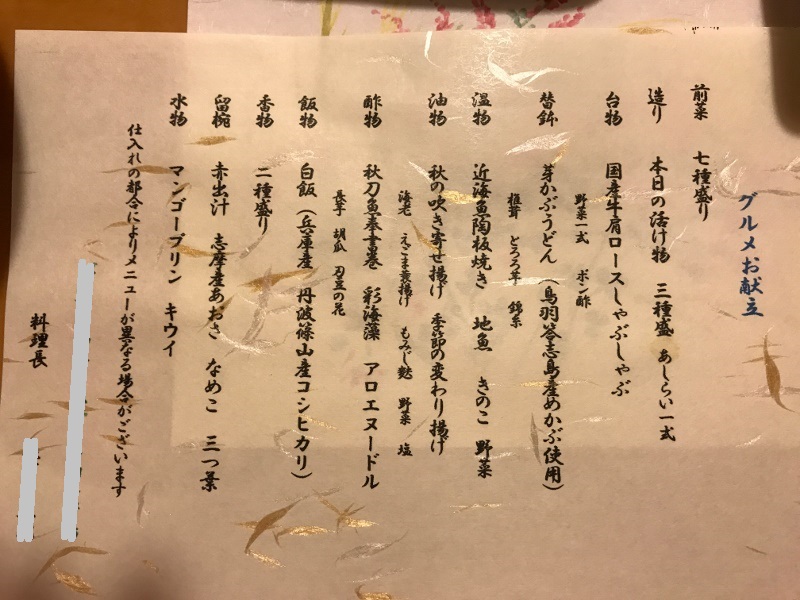 グルメお献立
前菜 七種盛り
造り 本日の活け物 三種盛 あしらい一式
台物 国産牛肩ロースしゃぶしゃぶ
野菜一式 ポン酢
替鉢 芽かぶうどん (鳥羽答志島産めかぶ使用)
椎茸 とろろ芋 錦糸
温物 近海魚陶板焼き 地魚 きのこ 野菜
油物 秋の吹き寄せ揚げ 季節の変わり揚げ
海老 えごま葉揚げ もみじ麩 野菜 塩
酢物 秋刀魚奉書巻 彩海藻 アロエヌードル
長芋 胡瓜 刃豆の花
飯物 白飯 (兵庫産 丹波篠山産コシヒカリ)
香物 二種盛り
留椀 赤出汁 志摩産あおさ なめこ 三つ葉
水物 マンゴープリン キウイ
仕入れの都合によりメニューが異なる場合がございます
料理長